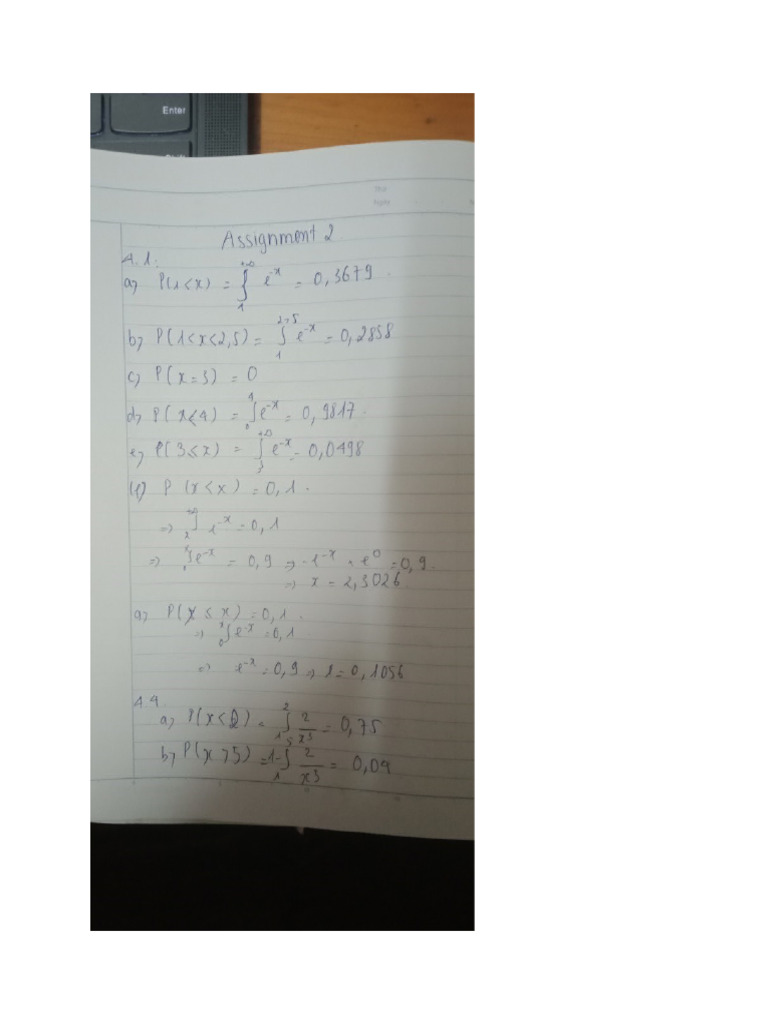 Enter
Assignment 2
4.1:
a) P(1<x) = ∫₁^{+∞} e^{-x} = 0,3679.
b) P(1<x<2,5) = ∫₁^{2,5} e^{-x} = 0,2858
c) P(x=3) = 0
d) P(x<4) = ∫₀^{4} e^{-x} = 0,9817.
e) P(3≤x) = ∫₃^{+∞} e^{-x} = 0,0498
P(x<x) = 0,1.
=> ∫ₓ^{+∞} e^{-x} = 0,1
=> ∫₀^{x} e^{-x} = 0,9 => -e^{-x} + e^{0} = 0,9.
=> x = 2,3026
g) P(x≤x) = 0,1.
=> ∫₀^{x} e^{-x} = 0,1
=> e^{-x} = 0,9 => x = 0,1056
4.4.
a) P(x<2) = ∫₁^{2} 2/x³ = 0,75
b) P(x>5) = 1-∫₁^{5} 2/x³ = 0,04